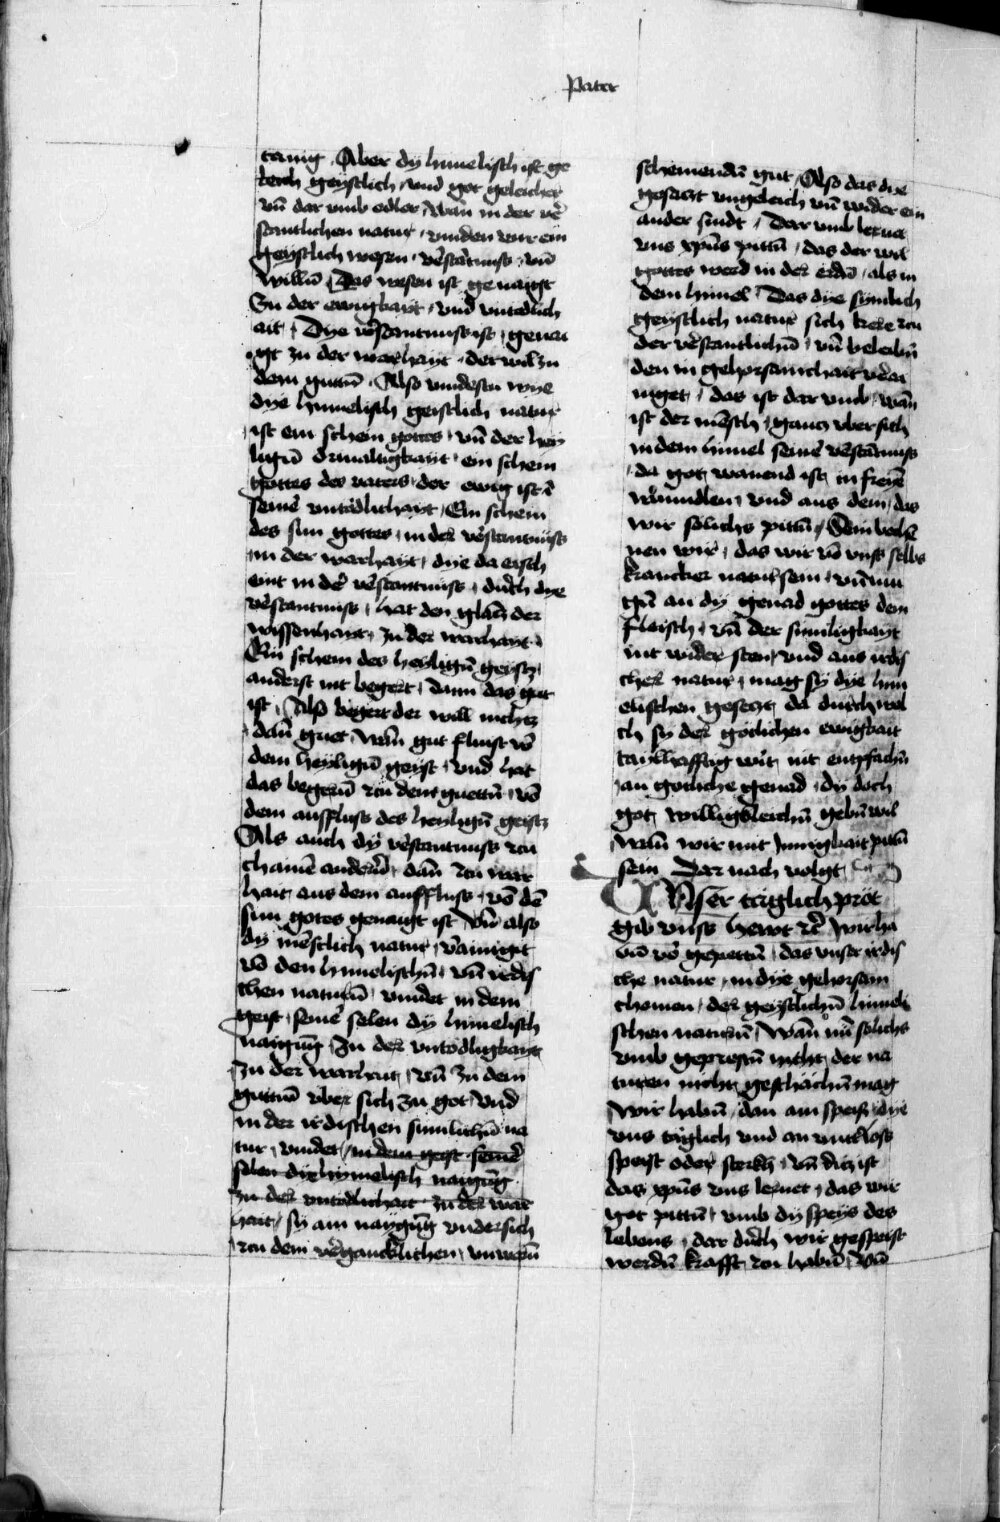 Pater
tung Aber dy himelisch ist ge
leich geystlich vnd got geleicher
vn̄ dar vmb edler Wan̄ in der v̄
stantlichen natur vinden wir ein
geystlich wesen v̄stantnuss vn̄
willn̄ Das wesen ist genaigt
Zu der ewigkayt vnd vntodlich
ait Dye v̄stantnuss ist genai
gt zu der warhayt der wil zu
dem guttn̄ Also vindestu wye
dye himelisch geistlich natur
ist ein schein gottes vn̄ der hey
lign̄ driualtigkayt ein schein
gottes des vaters der ewig ist ī
seinē vntodlichayt Ein schein
des sun gottes in der v̄stantnuss
in der warhayt dye da ersch
eint in der v̄stantnuss durch dye
v̄stantnuss hat den glancz der
wissenhayt zu der warhayt
Ein schein des heylign̄ geystz
anderst nit begert dann das gut
ist Also begert der will nichtz
dan̄ guet Wan̄ gut fluist vō
dem heylign̄ geyst vnd hat
das begern̄ zu dem guettn̄ vō
dem ausfluss des heylign̄ geistz
Als auch dy v̄stantnuss zu
chainē anderm̄ dan̄ zu war
hait aus dem ausffluss vō dē
sun gotes genaigt ist Vn̄ also
dy menschlich natur v̄ainigt
vō den himelischn̄ vn̄ irdis
chen naturn̄ vindet in dem
geist seiner selen dy himelisch
naygung Zu der vntodligkayt
zu der warhait vn̄ zu dem
guttn̄ vber sich zu got Vnd
in der irdischen sinlichn̄ na
tur vindet in dem geist seiner
selen dye hymelisch naigung
zu der vntodlichait zu der war
hait sy ain naygung vndersich
zu dem v̄gancklichen vnwern̄
scheinendn̄ gut Also das dye
gesaczt vngeleich vn̄ wider ein
ander sindt Dar vmb lernet
vns xp̄us pittn̄ das der wil
gottes werd in der erdn̄ als in
dem himel Das dye synlich
geystlich natur sich kere zu
der v̄stantlichn̄ vn̄ beleibn̄
den in gehorsamchait v̄ai
niget das ist dar vmb wan̄
ist der mensch gancz vber sich
in dem himel seiner v̄stantnuss
da got wanend ist in freyē
wanndlen vnd aus dem das
wir solichs pittn̄ Sein beche
nen wir das wir vō vnss selbs
krancker natur sein
an dy genad gottes dem
fleisch vn̄ der sinligkayt
nit wider sten vnd aus irdis
cher natur mag sy dye him
elischen gesecz da durch wel
ch sy der gotlichen ewigkait
taylhafftig wirt nit enpfachn̄
an gotliche genad dy doch
got willigkleichn̄ gebn̄ wil
Wan̄ wir mit innigkait pittn̄
sein Dar nach volgt
Unser täglich prot
gib vnss hewt etc̄ Wir ha
vn̄ vō gepettn̄ das vnser irdis
che natur in dye gehorsam
chomen der geystlichn̄ himeli
schen naturn̄ Wan̄ nu̇ solichs
vmb geprestn̄ nicht der na
turen nicht geschächn̄ mag
Wir habn̄ dan ain speiss dye
vns täglich vnd an vnderloss
speist oder sterkh vn̄ dicz ist
das xp̄us vns lernet das wir
got pittn̄ vmb dy speys des
lebens dar durch wir gespeist
werdn̄ krafft zu habn̄ Vn̄